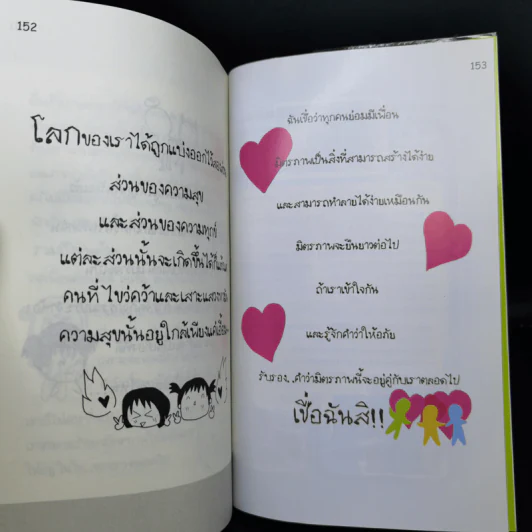 152
โลกของเราได้ถูกแบ่งออกไว้
ส่วนของความสุข
และส่วนของความทุกข์
แต่ละส่วนนั้นจะเกิดขึ้นได้
คนที่ไขว่คว้าและเสาะแสวง
ความสุขนั้นอยู่ใกล้เพียงแค่
153
ฉันเชื่อว่าทุกคนย่อมมีเพื่อน
มิตรภาพเป็นสิ่งที่สามารถสร้างได้ง่าย
และสามารถทำลายได้ง่ายเหมือนกัน
มิตรภาพจะยืนยาวต่อไป
ถ้าเราเข้าใจกัน
และรู้จักคำว่าให้อภัย
รับรอง..คำว่ามิตรภาพนี้จะอยู่คู่กับเราตลอดไป
เชื่อฉันสิ!!